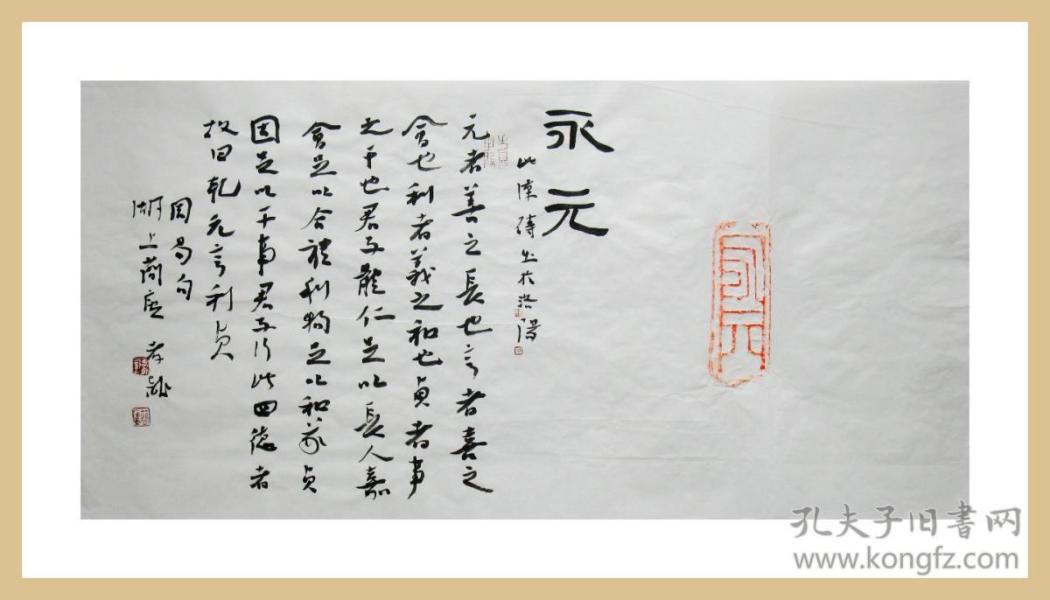 永元
永元
此漢磚出於洛陽
元者善之長也亨者喜之
會也利者義之和也貞者事
之干也君子體仁足以長人嘉
會足以合禮利物足以和義貞
固足以干事君子行此四德者
故曰乾元亨利貞
周易句
湖上
孔夫子旧書网
www.kongfz.com